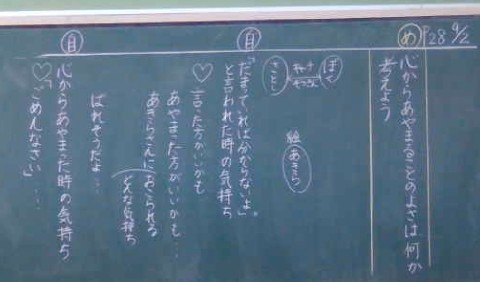 9/2
P28
め
心からあやまることのよさは何か
考えよう
ぼく
さとし
絵 あきら
自
「だまっていれば分からないよ。」
と言われた時の気持ち
♡言った方がいいかも
あやまった方がいいかも…
あきらくんにおこられる
どんな気持ち
ばれそうだよ…
自
心からあやまった時の気持ち
♡「ごめんなさい」…